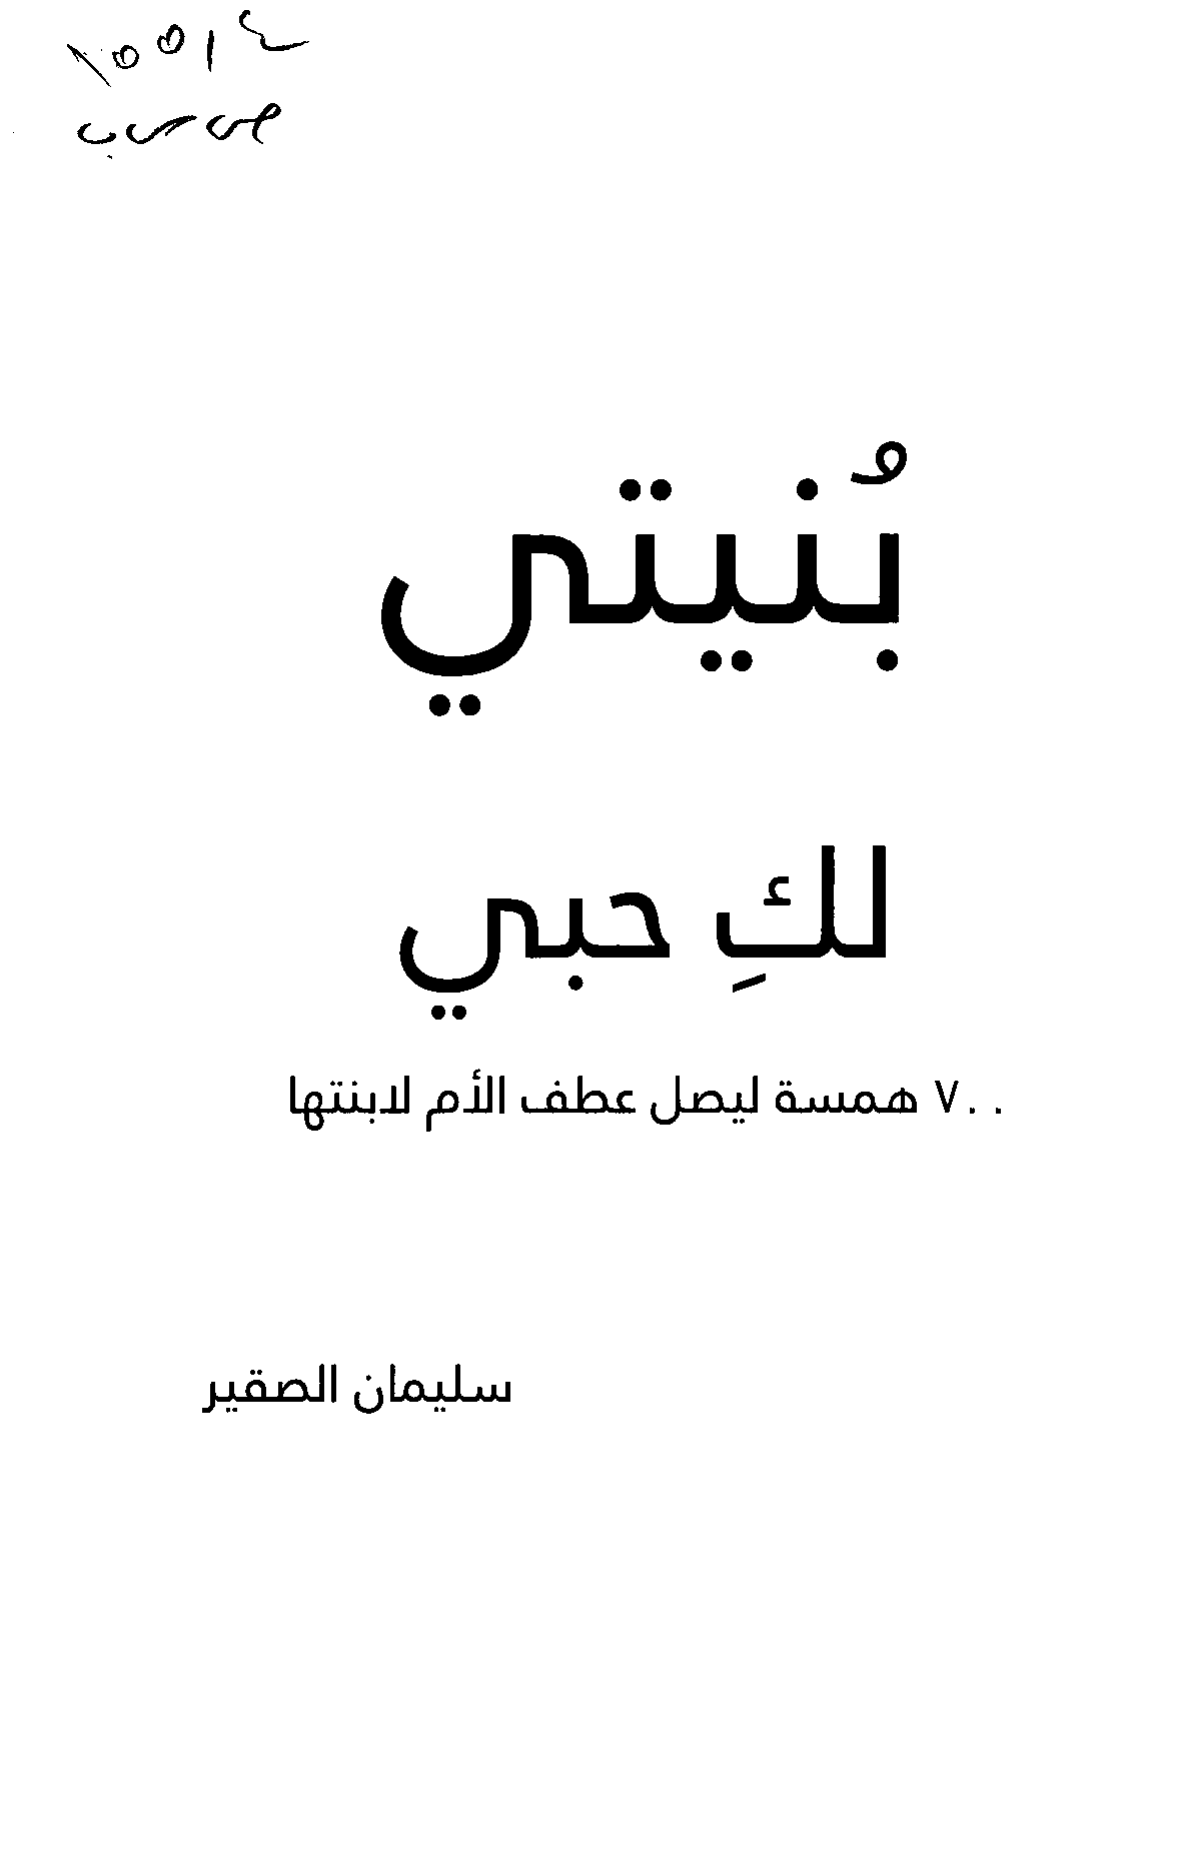 بُنيتي
لكِ حبي
٧٠٠ همسة ليصل عطف الأم لابنتها
سليمان الصقير